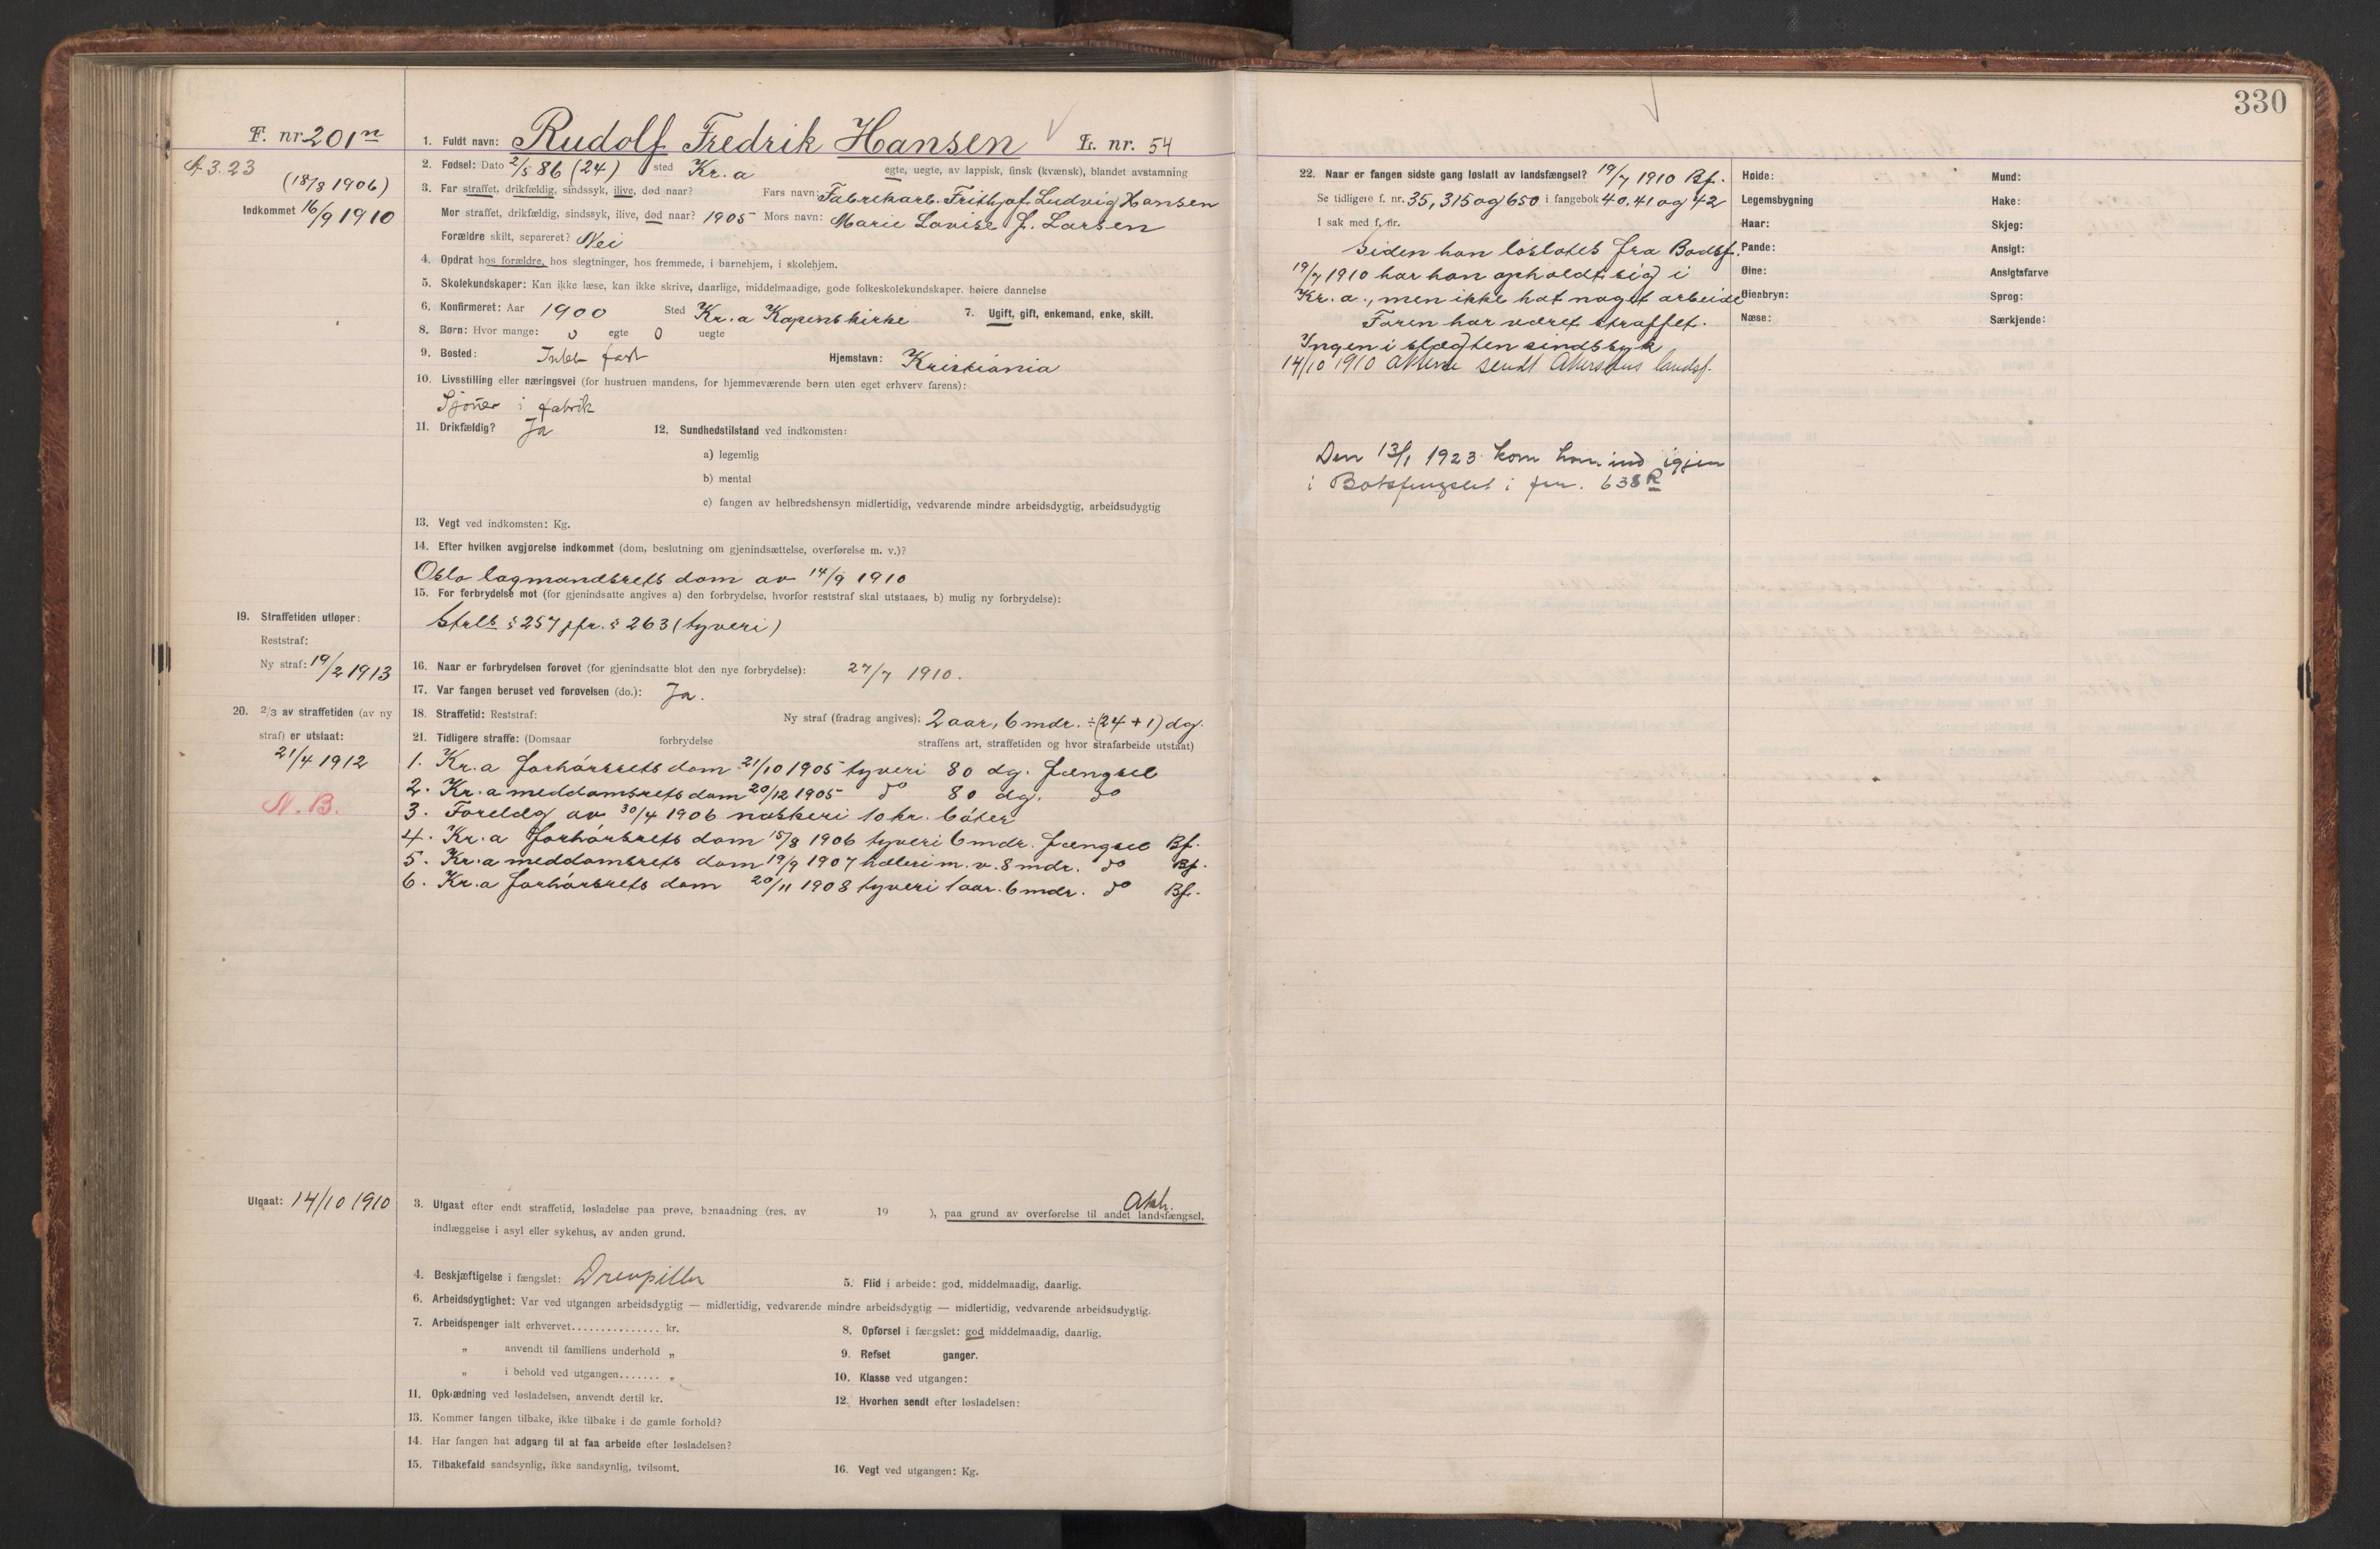 F. nr. 201 n
A. 3. 23
(18/8 1906)
Indkommet 16/9 1910
1. Fuldt navn: Rudolf Fredrik Hansen L. nr. 54
2. Fødsel: Dato 2/5 86 (24) sted Kr.a egte, uegte, av lappisk, finsk (kvænsk), blandet avstamning
3. Far straffet, drikfældig, sindssyk, ilive, død naar? Fars navn: Fabrikarb. Frithjof Ludvig Hansen
Mor straffet, drikfældig, sindssyk, ilive, død naar? 1905 Mors navn: Marie Lovise f. Larsen
Forældre skilt, separeret? Nei
4. Opdrat hos forældre, hos slegtninger, hos fremmede, i barnehjem, i skolehjem.
5. Skolekundskaper: Kan ikke læse, kan ikke skrive, daarlige, middelmaadige, gode folkeskolekundskaper. høiere dannelse
6. Konfirmeret: Aar 1900 Sted Kr.a Kapenskirke 7. Ugift, gift, enkemand, enke, skilt.
8. Børn: Hvor mange: 0 egte 0 uegte
9. Bosted: Intet fast Hjemstavn: Kristiania
10. Livsstilling eller næringsvei (for hustruen mandens, for hjemmeværende børn uten eget erhverv farens):
i fabrik
11. Drikfældig? Ja 12. Sundhedstilstand ved indkomsten:
a) legemlig
b) mental
c) fangen av helbredshensyn midlertidig, vedvarende mindre arbeidsdygtig, arbeidsudygtig
13. Vegt ved indkomsten: Kg.
14. Efter hvilken avgjørelse indkommet (dom, beslutning om gjenindsættelse, overførelse m. v.)?
Oslo lagmandsrets dom av 14/9 1910
15. For forbrydelse mot (for gjenindsatte angives a) den forbrydelse, hvorfor reststraf skal utstaaes, b) mulig ny forbrydelse):
Strls § 257 jfr. § 263 (tyveri)
19. Straffetiden utløper:
Reststraf:
Ny straf: 19/2 1913
16. Naar er forbrydelsen forøvet (for gjenindsatte blot den nye forbrydelse): 27/7 1910.
17. Var fangen beruset ved forøvelsen (do.): Ja.
20. 2/3 av straffetiden (av ny
straf) er utstaat:
21/4 1912
N. B.
18. Straffetid: Reststraf: Ny straf (fradrag angives): 2 aar, 6 mdr. ÷ (24 + 1) dg.
21. Tidligere straffe: (Domsaar forbrydelse straffens art, straffetiden og hvor strafarbeide utstaat)
1. Kr.a forhørsrets dom 21/10 1905 tyveri 80 dg. fængsel
2. Kr.a meddomsrets dom 20/12 1905 do 80 dg. do
3. Forelæg av 30/4 1906 naskeri 10 kr. bøter
4. Kr.a forhørsrets dom 15/8 1906 tyveri 6 mdr. fængsel Bf.
5. Kr.a meddomsrets dom 19/9 1907 hæleri m. v. 8 mdr. do Bf.
6. Kr.a forhørsrets dom 20/11 1908 tyveri 1 aar. 6 mdr. do Bf.
Utgaat: 14/10 1910
Aksh.
3. Utgaat efter endt straffetid, løsladelse paa prøve, benaadning (res. av 19 ), paa grund av overførelse til andet landsfængsel.
indlæggelse i asyl eller sykehus, av anden grund.
4. Beskjæftigelse i fængslet: Drevpiller 5. Flid i arbeide: god, middelmaadig, daarlig.
6. Arbeidsdygtighet: Var ved utgangen arbeidsdygtig — midlertidig, vedvarende mindre arbeidsdygtig — midlertidig, vedvarende arbeidsudygtig.
7. Arbeidspenger ialt erhvervet............... kr. 8. Opførsel i fængslet: god middelmaadig, daarlig.
„ anvendt til familiens underhold „ 9. Refset ganger.
„ i behold ved utgangen....... „ 10. Klasse ved utgangen:
11. Opklædning ved løsladelsen, anvendt dertil kr. 12. Hvorhen sendt efter løsladelsen:
13. Kommer fangen tilbake, ikke tilbake i de gamle forhold?
14. Har fangen hat adgang til at faa arbeide efter løsladelsen?
15. Tilbakefald sandsynlig, ikke sandsynlig, tvilsomt. 16. Vegt ved utgangen: Kg.
330
22. Naar er fangen sidste gang løslatt av landsfængsel? 19/7 1910 Bf.
Se tidligere f. nr. 35, 315 og 650 i fangebok 40, 41 og 42
I sak med f. nr.
Siden han løslotes fra Bodsf.
19/7 1910 har han opholdt sig i
Kr.a., men ikke hat noget arbeide
Faren har været straffet.
Ingen i slægten sindssyk
14/10 1910 aktene sendt Akershus landsf.
Den 13/1 1923 kom han ind igjen
i Botsfengslet i fnr. 638 R
Høide: Mund:
Legemsbygning Hake:
Haar: Skjeg:
Pande: Ansigt:
Øine: Ansigtsfarve
Øienbryn: Sprog:
Næse: Særkjende: